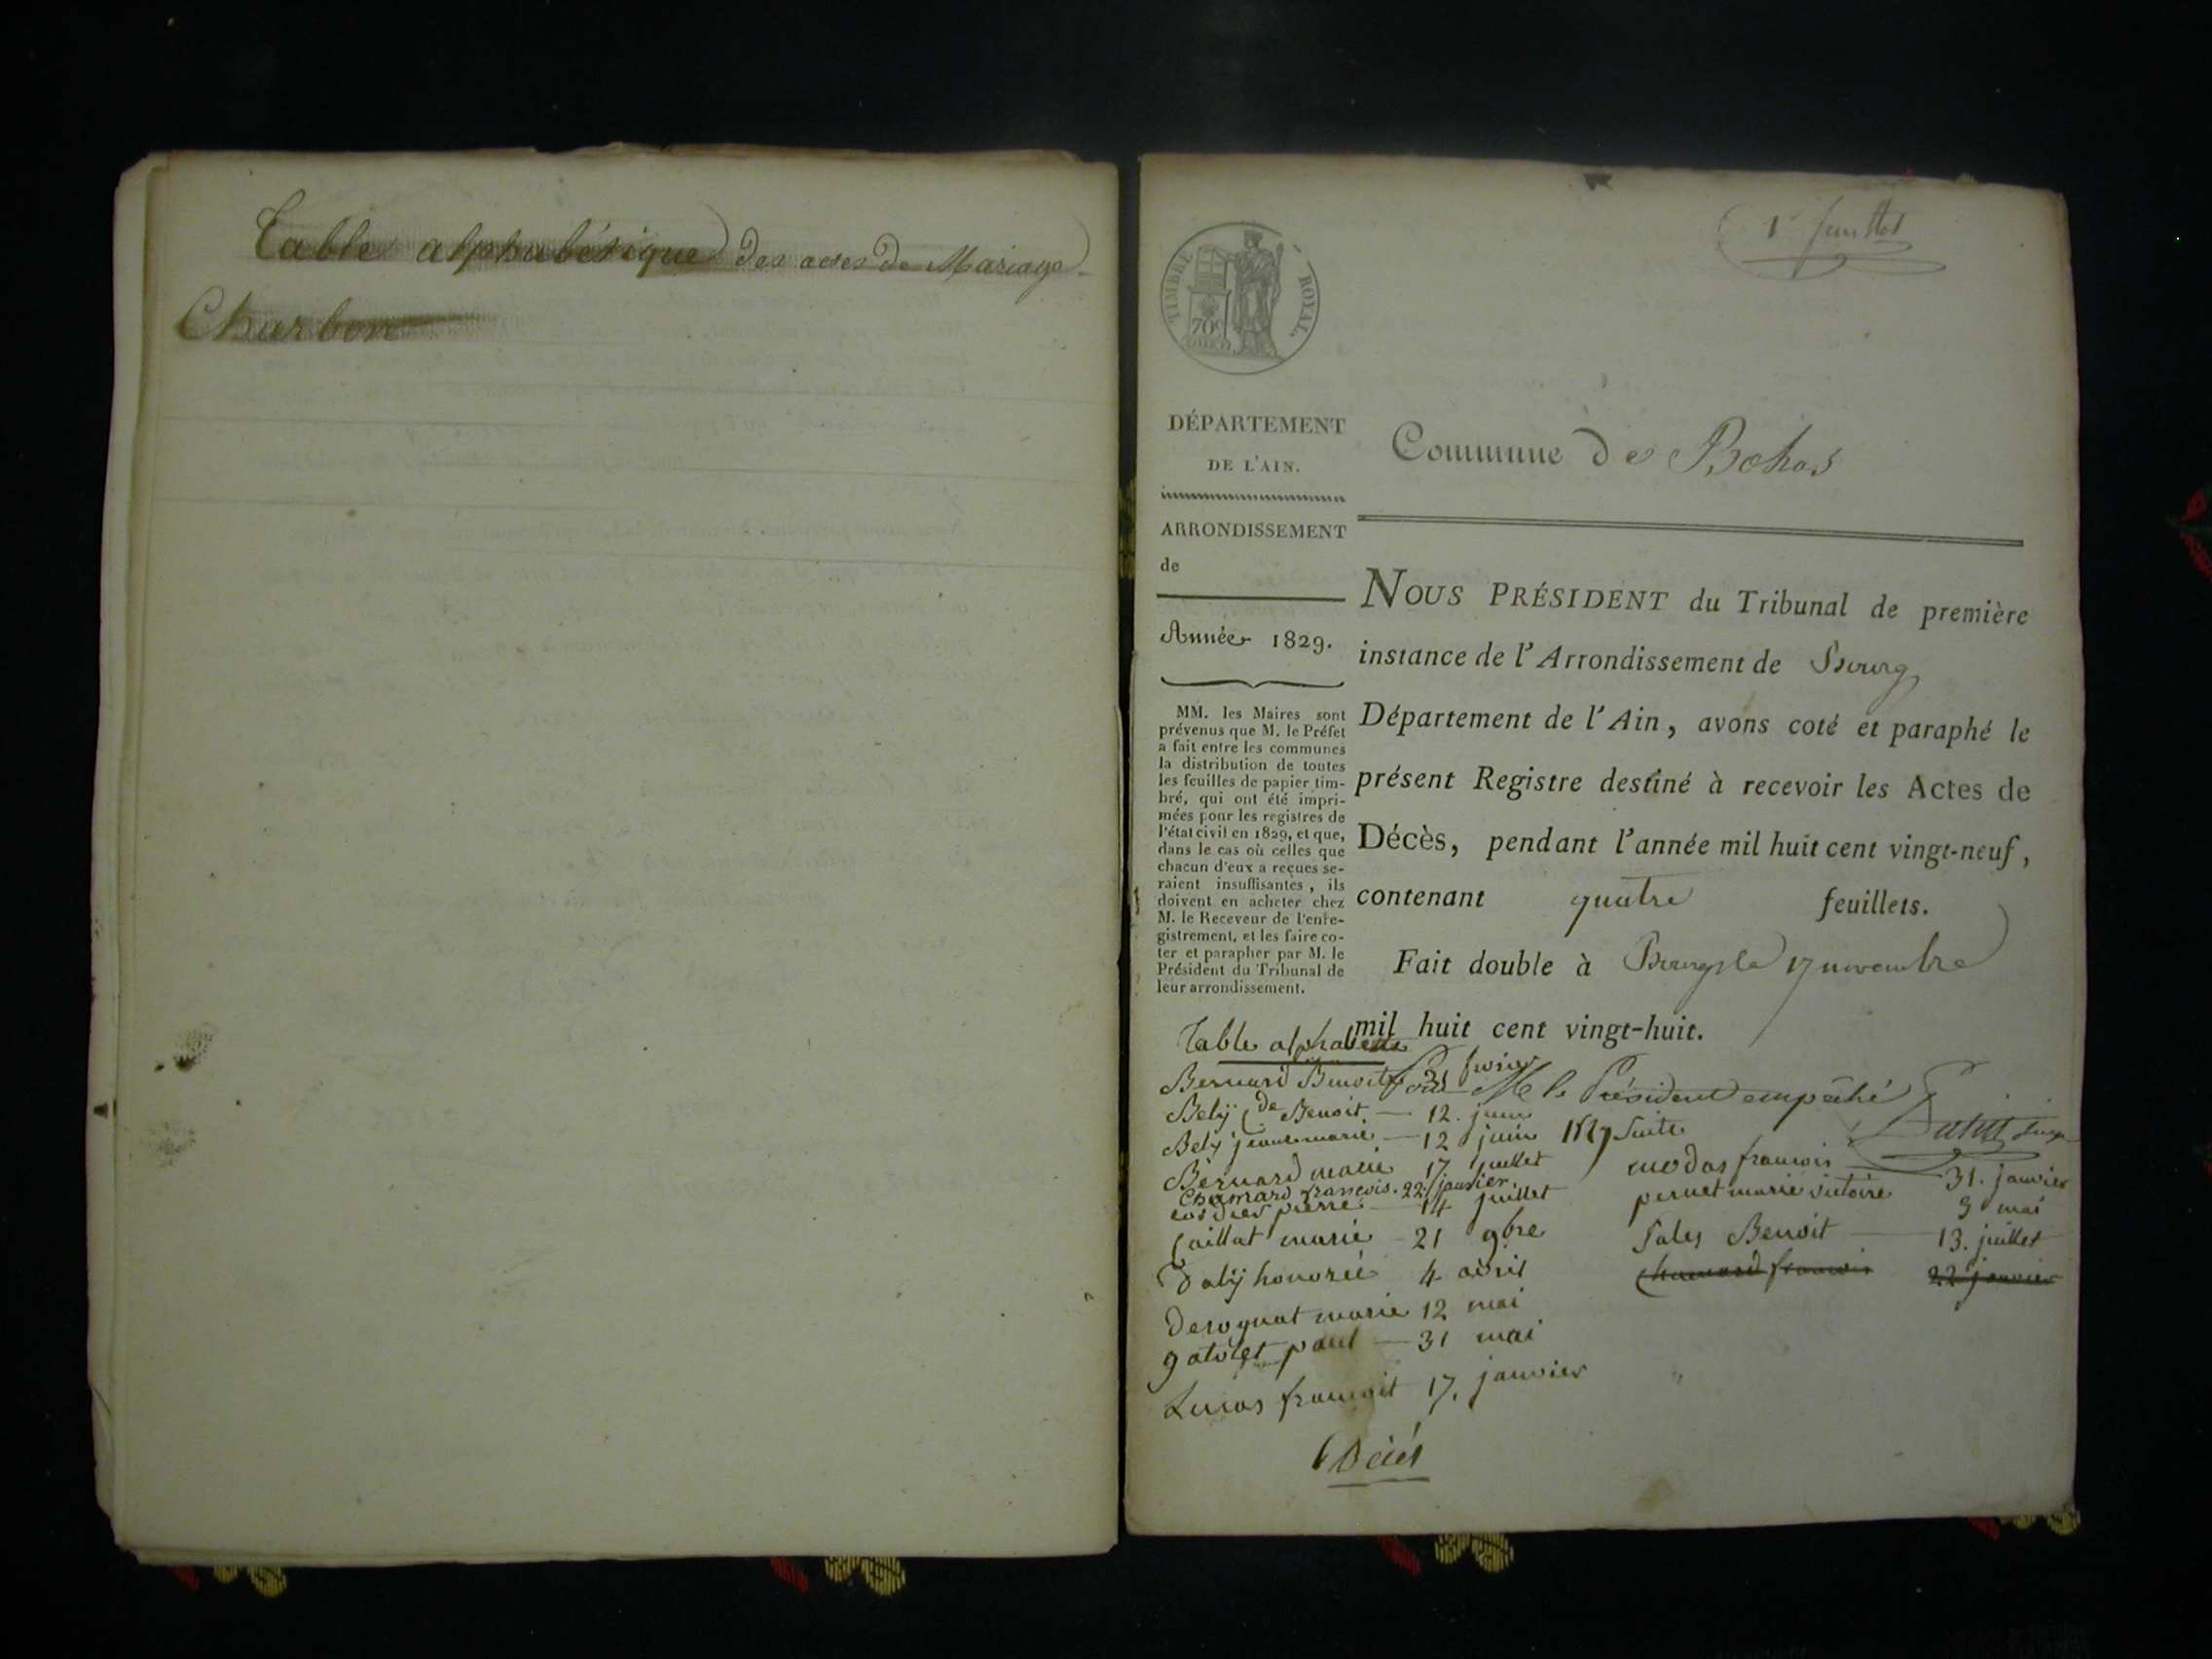 Table alphabétique des actes de Mariage
Charbon
1er feuillet
TIMBRE ROYAL
70c
DÉPARTEMENT
DE L'AIN.
ARRONDISSEMENT
de
Année 1829.
MM. les Maires sont
prévenus que M. le Préfet
a fait entre les communes
la distribution de toutes
les feuilles de papier tim-
bré, qui ont été impri-
mées pour les registres de
l'état civil en 1829, et que,
dans le cas où celles que
chacun d'eux a reçues se-
raient insuffisantes, ils
doivent en acheter chez
M. le Receveur de l'enre-
gistrement, et les faire co-
ter et parapher par M. le
Président du Tribunal de
leur arrondissement.
Commune de Bohas
NOUS PRÉSIDENT du Tribunal de première
instance de l'Arrondissement de Bourg
Département de l'Ain, avons coté et paraphé le
présent Registre destiné à recevoir les Actes de
Décès, pendant l'année mil huit cent vingt-neuf,
contenant quatre feuillets.
Fait double à Bourg le 17 novembre
mil huit cent vingt-huit.
Pour M le Président empêché
Table alphabete
Bernard Benoit 21 fevrier
Belÿ de Benoit — 12. juin
Bely jeanne marie — 12 juin
Bernard marie 17 juillet
Chamard francois. 22. janvier.
pierre 14 juillet
Caillat marie - 21 9bre
Dalÿ honoreé 4 avril
Derognat marie 12 mai
gatolet paul — 31 mai
Lucas francoit 17. janvier
Suite
modas francois 31. janvier
pernet marie victoire 3 mai
Sales Benoit — 13. juillet
Chamard francois 22 janvier
Décés